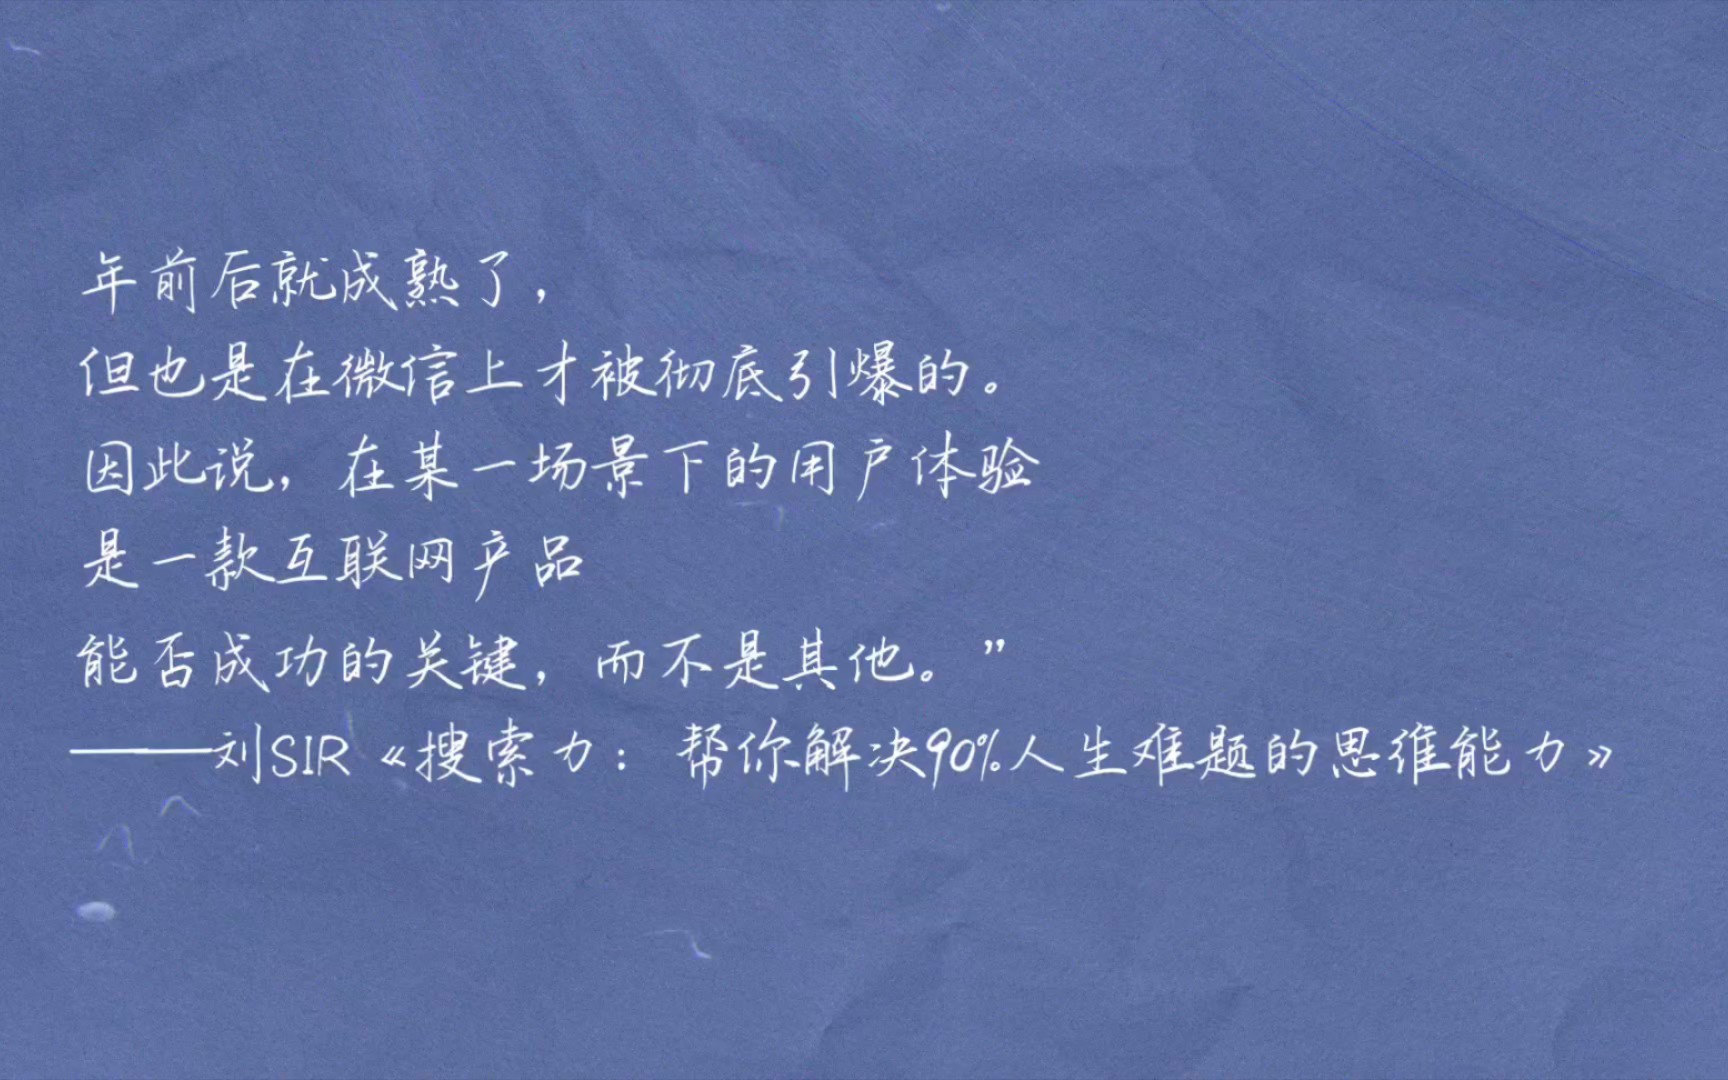 年前后就成熟了，
但也是在微信上才被彻底引爆的。
因此说，在某一场景下的用户体验
是一款互联网产品
能否成功的关键，而不是其他。”
——刘SIR《搜索力：帮你解决90%人生难题的思维能力》